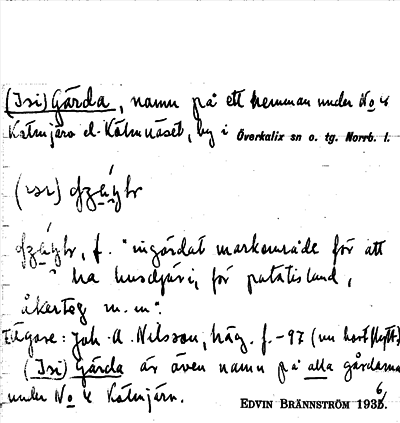 (Isi) Gärda, namn på ett hemman under No 4
Kätmjärv el. Kätmnäset, by i Överkalix sn o. tg. Norrb. l.
f. "ingärdat markområde för att
ha husdjur i, för potatisland,
åkerteg m.m".
Ägare: Joh. A. Nilsson, häg. f. -97 (nu bortflytt.)
(Isi) Gärda är även namn på alla gårdarna
under No 4 Kätmjärv.
EDVIN BRÄNNSTRÖM 1936.